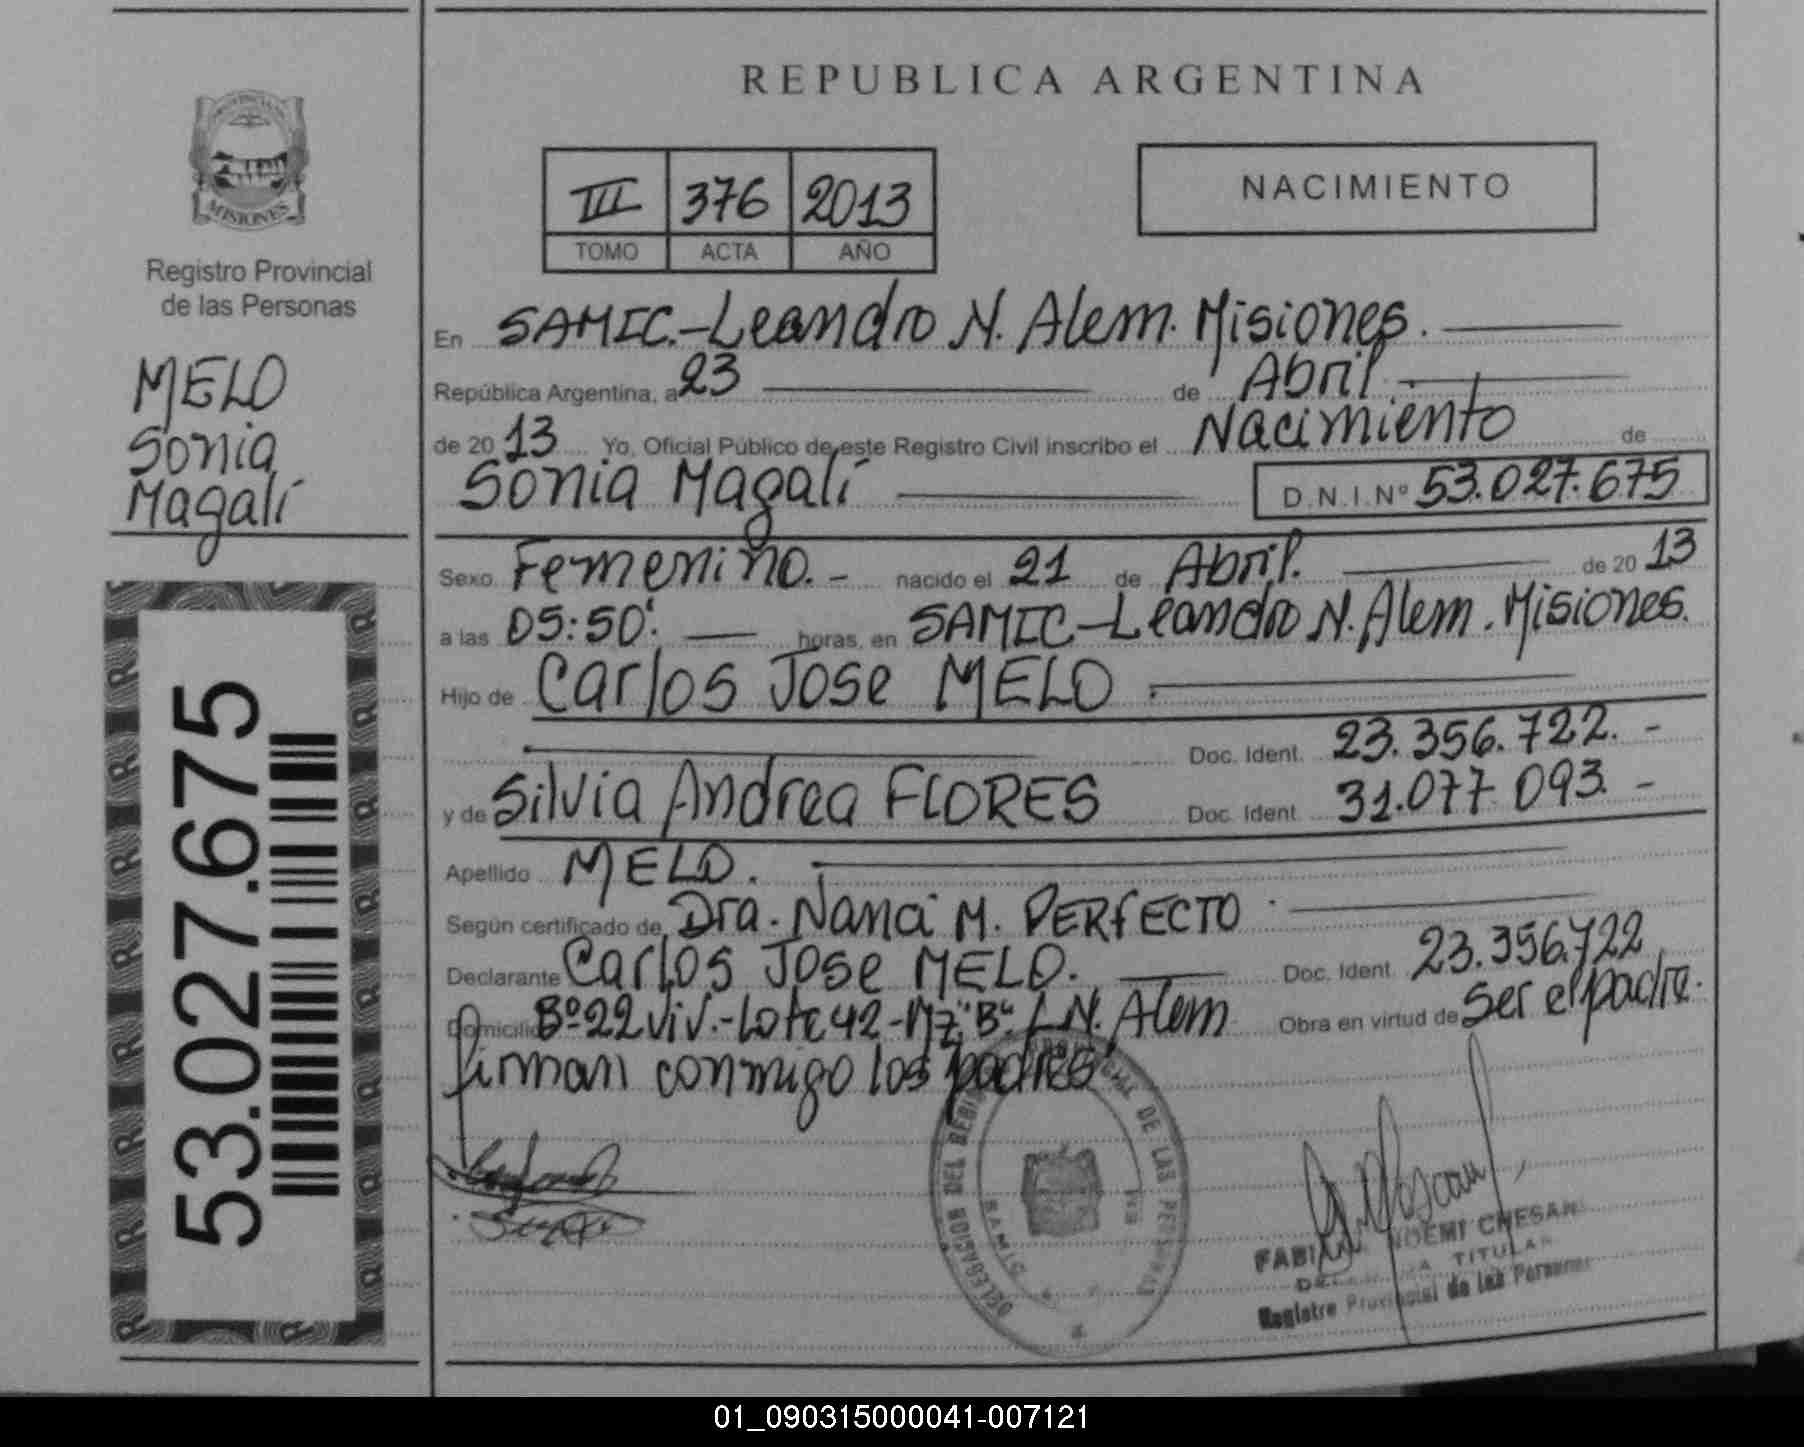 REPUBLICA ARGENTINA
PROVINCIA
MISIONES
Registro Provincial
de las Personas
MELO
Sonia
Magalí
53.027.675
III 376 2013
TOMO ACTA AÑO
NACIMIENTO
En SAMIC.-Leandro N. Alem. Misiones.
República Argentina, a 23 de Abril.
de 2013 Yo, Oficial Público de este Registro Civil inscribo el Nacimiento de
Sonia Magalí D.N.I.Nº 53.027.675
Sexo Femenino.- nacido el 21 de Abril. de 2013
a las 05:50'. horas, en SAMIC-Leandro N. Alem. Misiones.
Hijo de Carlos Jose MELO.
Doc. Ident. 23.356.722.-
y de Silvia Andrea FLORES Doc. Ident. 31.077.093.-
Apellido MELO.
Según certificado de Dra. Nanci M. PERFECTO.
Declarante Carlos Jose MELO. Doc. Ident. 23.356.722
Domicilio Bº22 viv.-Lote 42-Mz"B". L.N. Alem Obra en virtud de Ser el padre.
firman conmigo los padres
DELEGACION DEL DE LAS PERSONAS
SAMIC
NOEMI CHESAN
TITULAR
Registro Provincial de las Personas
01_090315000041-007121